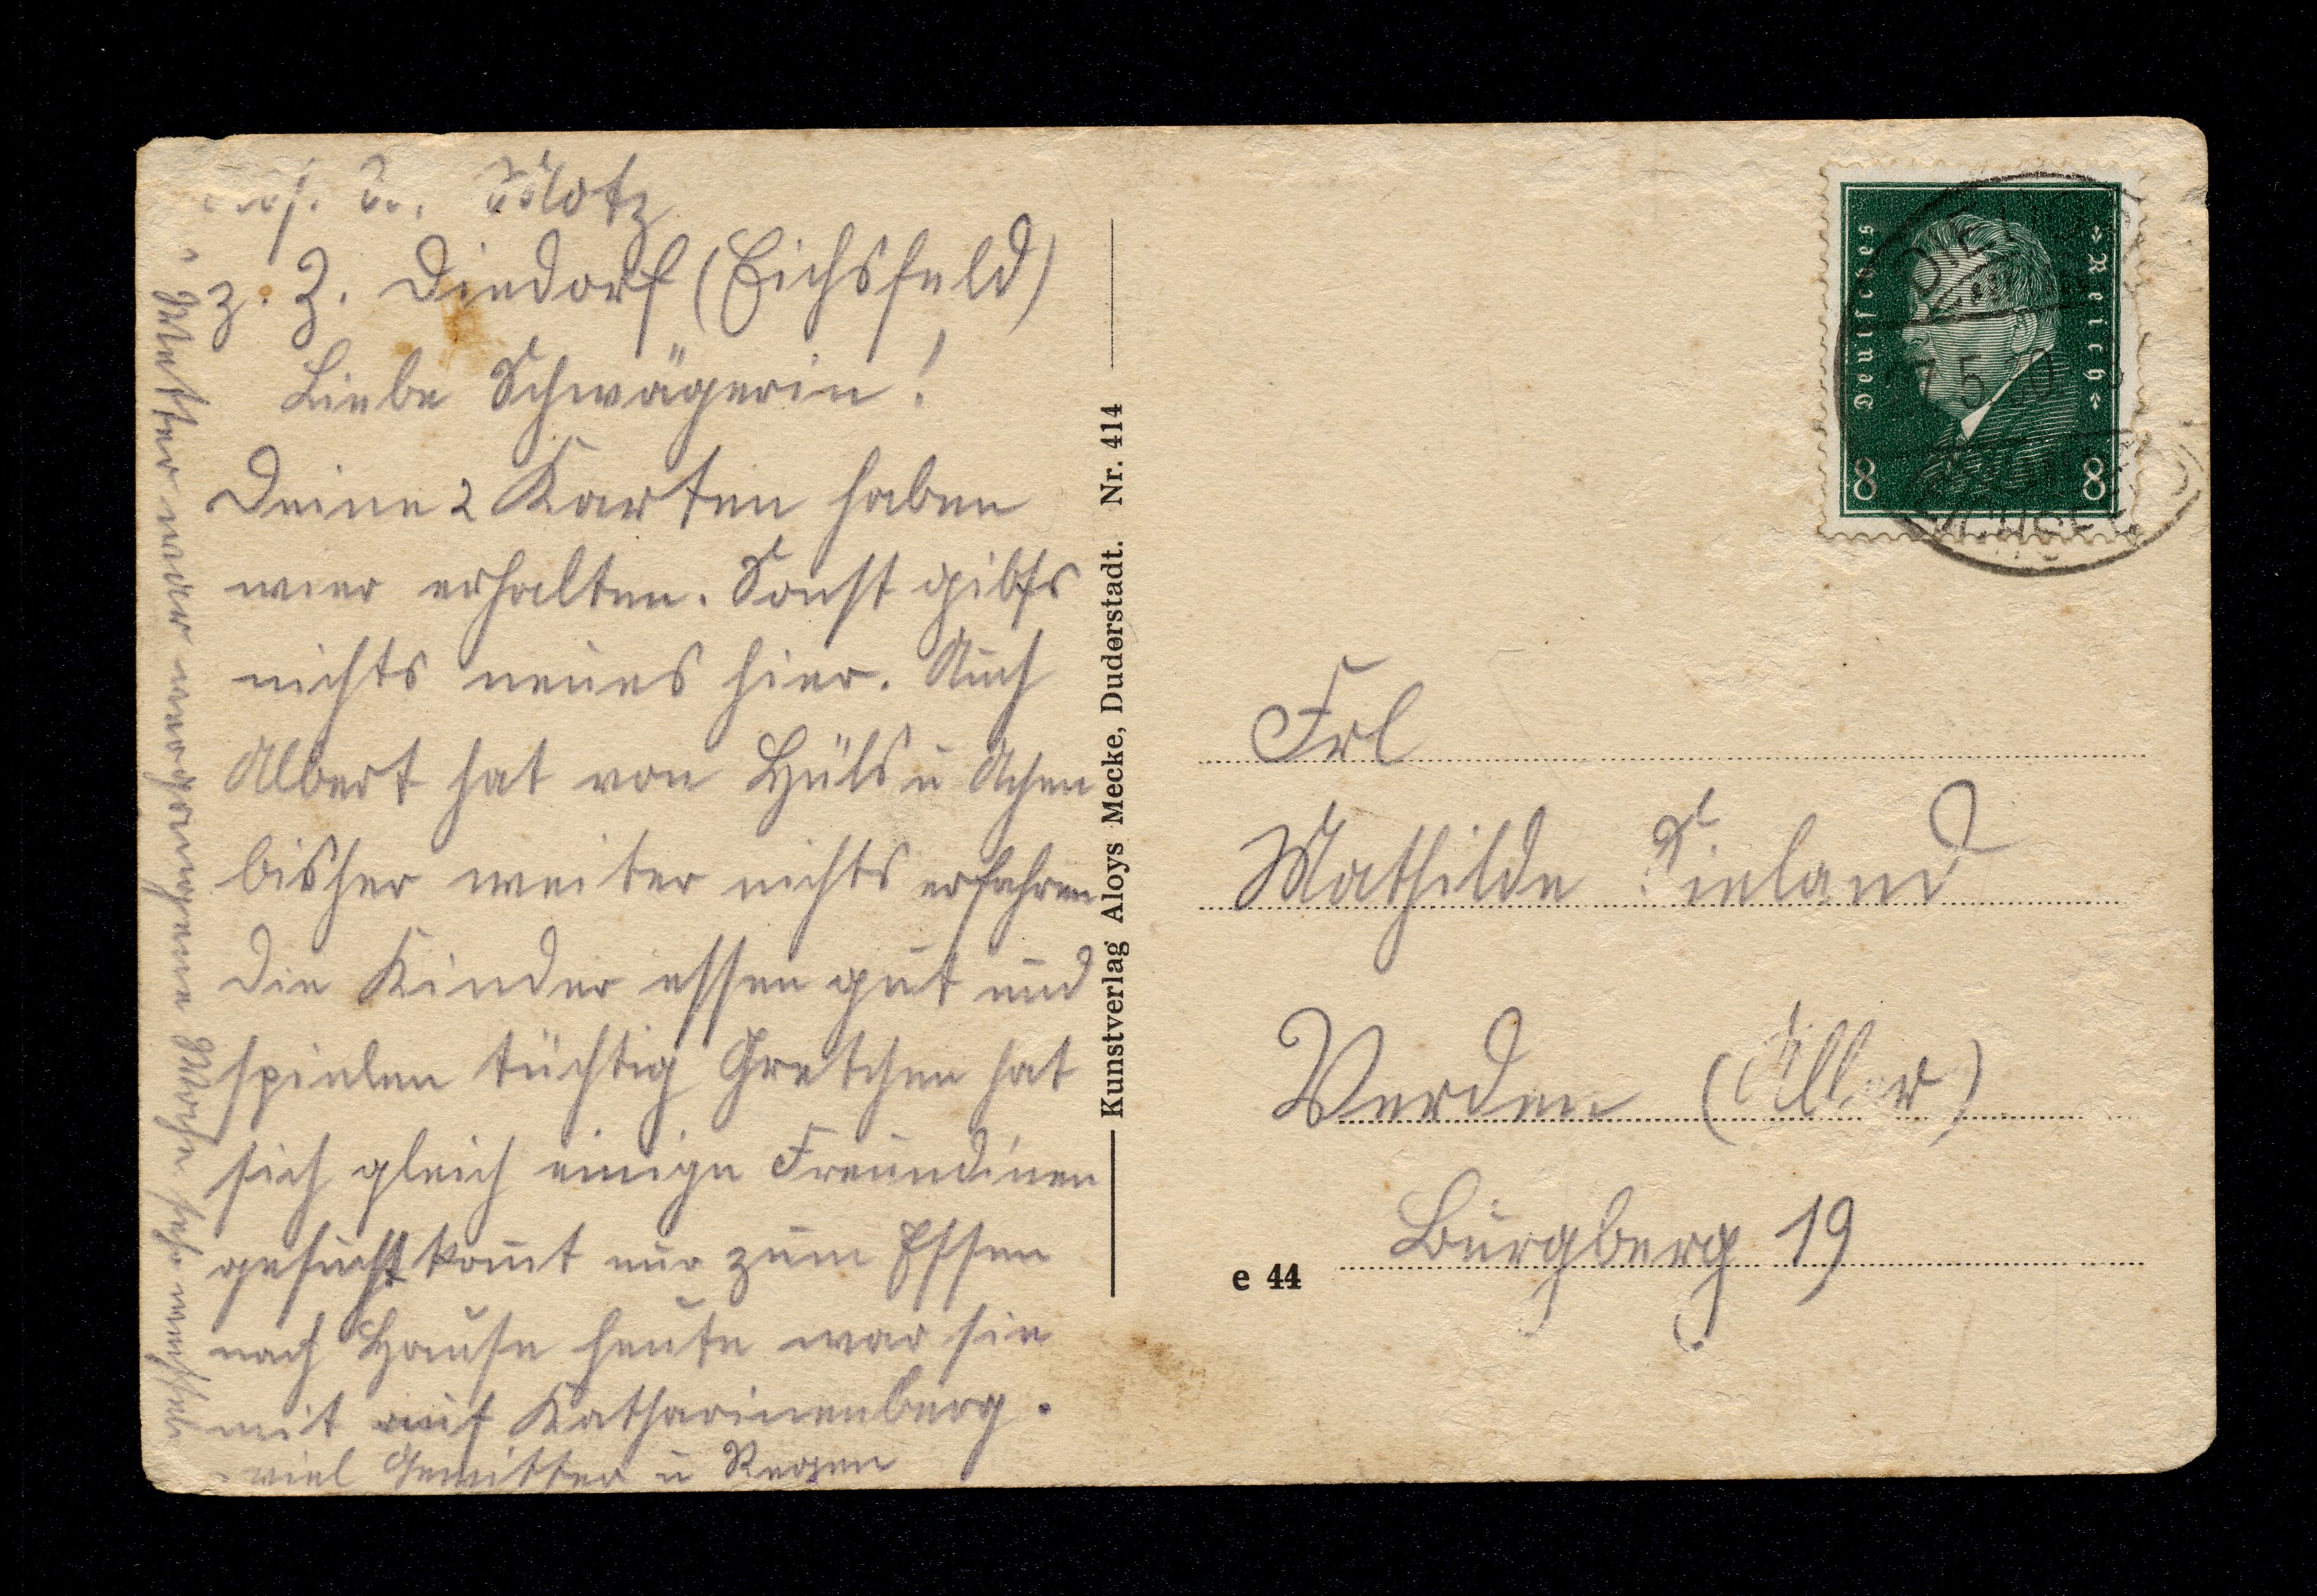 Klotz
z. Z. Diedorf (Eichsfeld)
Liebe Schwägerin!
Deine 2 Karten haben
wier erhalten. Sonst gibts
nichts neues hier. Auch
Albert hat von Hüls u Achen
bisher weiter nichts erfahren
Die Kinder essen gut und
spielen tüchtig Gretchen hat
sich gleich einige Freundinen
gesucht komt nur zum Essen
nach Hause heute war sie
mit auf Katharinenberg.
viel Gewitter u Regen
Wetter war vergangene Woche sehr
Kunstverlag Aloys Mecke, Duderstadt. Nr. 414
Deutsches Reich
8 8
27.5.30
Frl
Mathilde
Verden (Aller)
Burgberg 19
e 44